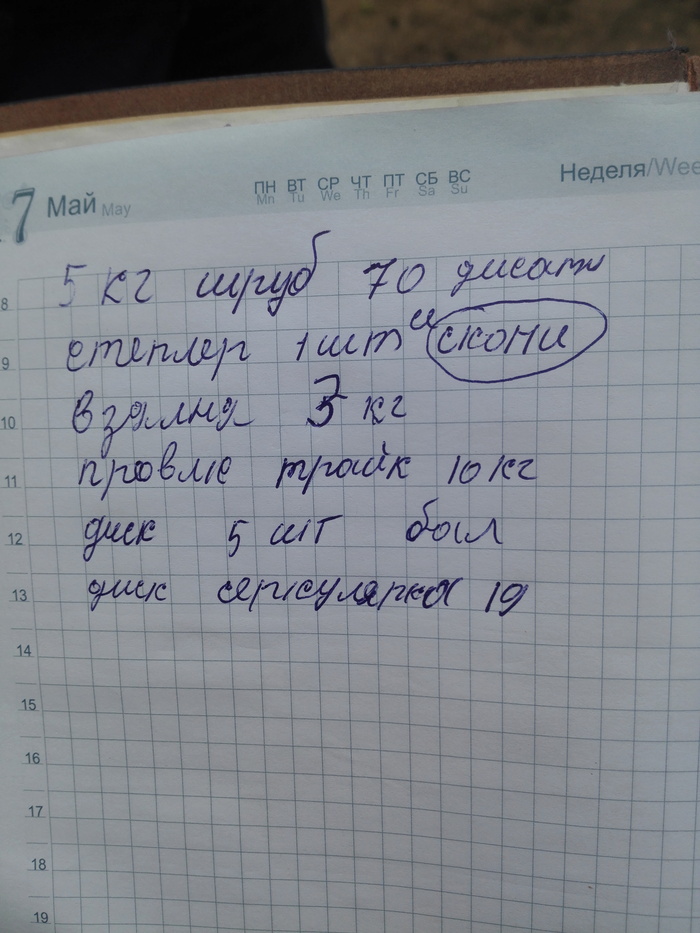 7 Май May ПН ВТ СР ЧТ ПТ СБ ВС Неделя/Wee
Mn Tu We Th Fr Sa Su
8 5 кг шруб 70 дисаты
9 степлер 1 шт и скони
10 взялна 3 кг
11 провлс трайк 10 кг
12 диск 5 шт бол
13 диск серкулярка 19
14
15
16
17
18
19